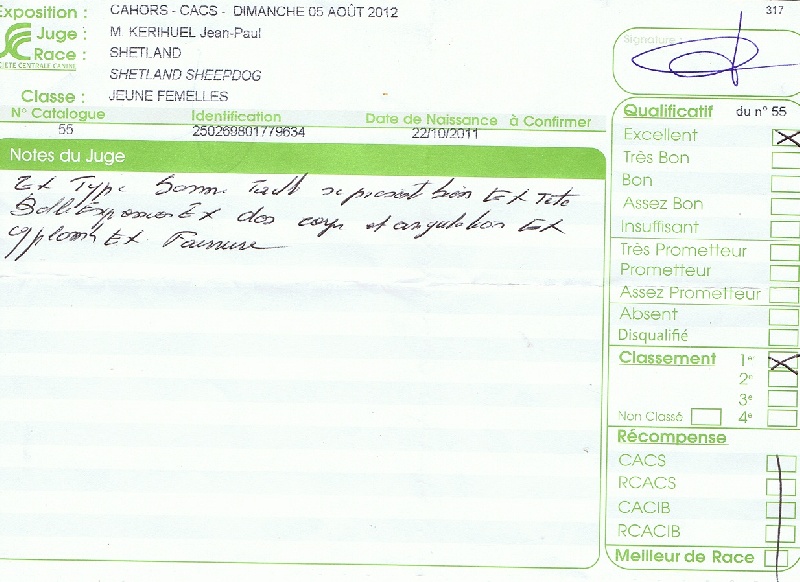 Exposition : CAHORS - CACS - DIMANCHE 05 AOÛT 2012
317
Juge : M. KERIHUEL Jean-Paul
Race : SHETLAND
SOCIÉTÉ CENTRALE CANINE
SHETLAND SHEEPDOG
Classe : JEUNE FEMELLES
Signature :
N° Catalogue Identification Date de Naissance à Confirmer
55 250269801779634 22/10/2011
Notes du Juge
Ex Type bonne Taille se présente bien Ex Tete
Belle Expression Ex dos corps et angulation Ex
Ex Fourrure
Qualificatif du n° 55
Excellent
Très Bon
Bon
Assez Bon
Insuffisant
Très Prometteur
Prometteur
Assez Prometteur
Absent
Disqualifié
Classement 1er
2e
3e
Non Classé 4e
Récompense
CACS
RCACS
CACIB
RCACIB
Meilleur de Race